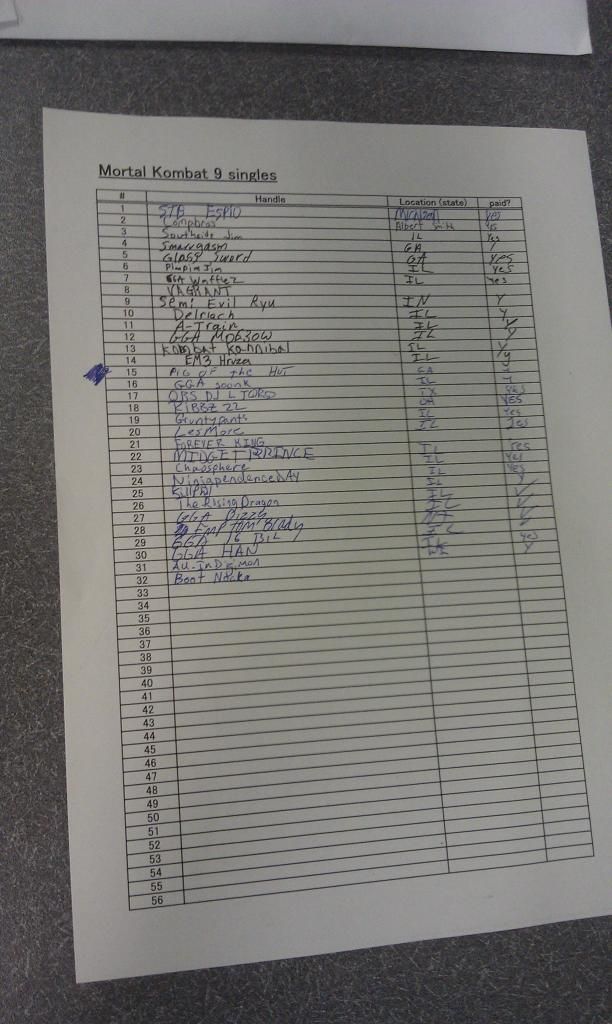 Mortal Kombat 9 singles
# Handle Location (state) paid?
1 STB Espio Michigan yes
2 Compbros Albert Smith yes
3 Southside Jim IL Yes
4 Smeargasm GA Y
5 Glass Sword GA yes
6 Pimpim Jim IL yes
7 GGA Wafflez IL yes
8 VAGRANT
9 Semi Evil Ryu IN Y
10 Delriach IL Y
11 A-Train IL
12 GGA IL Y
13 Kombat Kannibal IL Y
14 EM3 Hruza IL Y
15 PIG OF the HUT GA Y
16 GGA soonk IL Y
17 OBS DJ L TORO TX Yes
18 KIBBZ 22 OH YES
19 Gruntypants IL Yes
20 LesMore IL Yes
21 FOREVER KING
22 MIDGET PRINCE IL yes
23 Chaosphere IL yes
24 NinjapendenceDAy IL Y
25 IL
26 The Rising Dragon IL
27 GGA Dizzy
28 EMP Tom Brady IL
29 GGA 16 BIT IL yes
30 GGA HAN Y
31
32 Boot
33
34
35
36
37
38
39
40
41
42
43
44
45
46
47
48
49
50
51
52
53
54
55
56